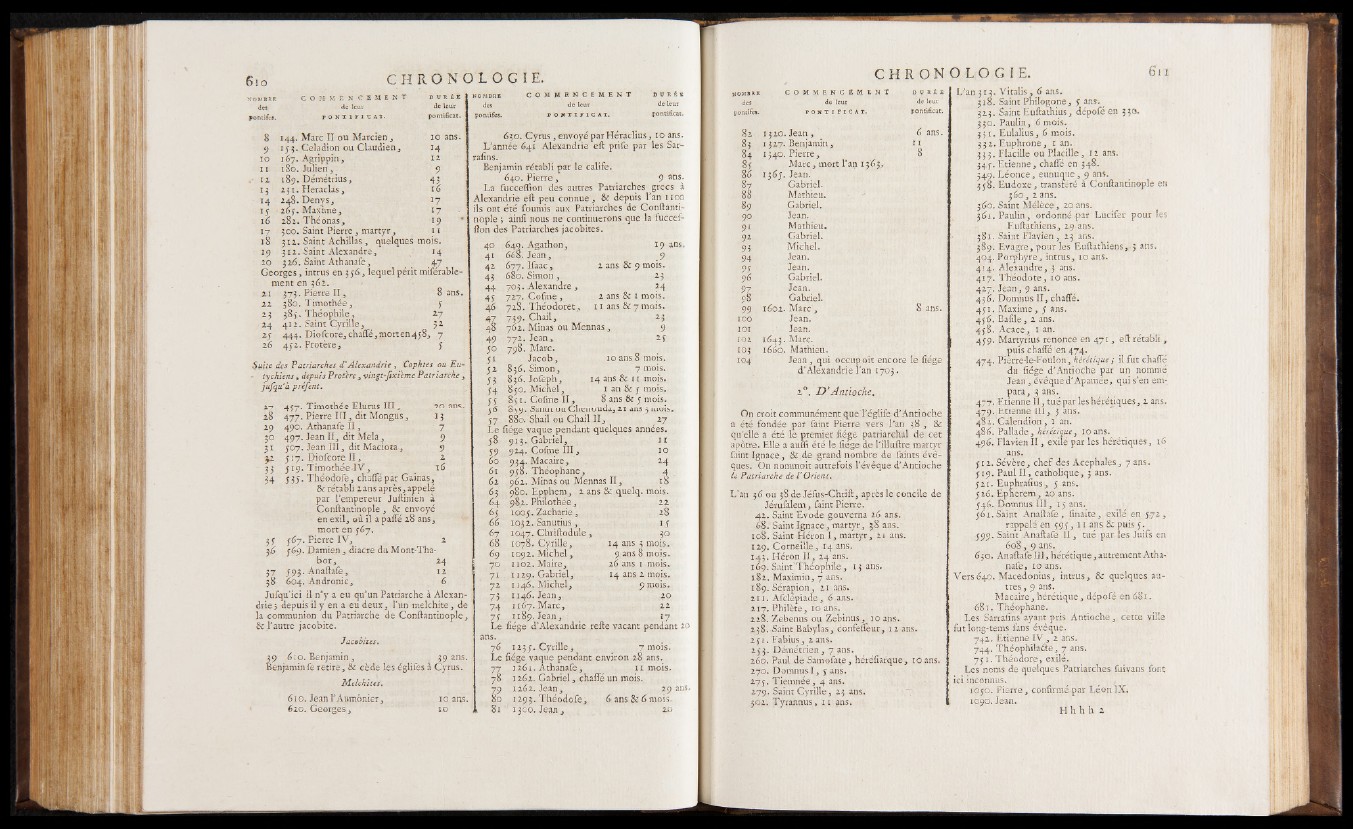 610 CHRONOLOGIE.
NOMBRE COMMENCEMENT DURÉE
des de leur de leur
pontifes. PONTIFICAT. pontificat.
8 144. Marc II ou Marcien, 10 ans.
9 153. Celadion ou Claudien, 14
10 167. Agrippin, 12
11 180. Julien, 9
12 189. Démétrius, 43
13 231. Heraclas, 16
14 248. Denys, 17
15 265. Maxime, 17
16 282. Théonas, 19
17 300. Saint Pierre, martyr, 11
18 312. Saint Achillas, quelques mois.
19 312. Saint Alexandre, 14
20 326. Saint Athanaſe, 47
Georges, intrus en 356, lequel périt miſérable-
ment en 362.
21 373. Pierre II, 8 ans.
22 380. Timothée, 5
23 385. Théophile, 27
24 412. Saint Cyrille, 32
25 444. Dioſcore, chaſſé, mort en 458, 7
26 452. Protère, 5
Suite des Patriarches d'Alexandrie, Cophtes ou Eu-
tychiens, depuis Protère, vingt-ſixième Patriarche,
juſqu'à préſent.
27 457. Timothée Elurus III, 20 ans.
28 477. Pierre III, dit Mongus, 13
29 490. Athanaſe II, 7
30 497. Jean II, dit Mela, 9
31 507. Jean III, dit Maciota, 9
32 517. Dioſcore II, 2
33 519. Timothée IV, 16
34 535. Théodoſe, chaſſé par Gainas,
& rétabli 2 ans après, appelé
par l'empereur Juſtinien à
Conſtantinople, & envoyé
en exil, où il a paſſé 28 ans,
mort en 567.
35 567. Pierre IV, 2
36 569. Damien, diacre du Mont-Tha-
bor, 24
37 593. Anaſtaſe, 12
38 604. Andronic, 6
Juſqu'ici il n'y a eu qu'un Patriarche à Alexan-
drie; depuis il y en a eu deux, l'un melchite, de
la communion du Patriarche de Conſtantinople,
& l'autre jacobite.
Jacobites.
39 610. Benjamin, 39 ans.
Benjamin ſe retire, & cède les égliſes à Cyrus.
Melchites.
610. Jean l'Aumônier, 10 ans.
620. Georges, 10
NOMBRE COMMENCEMENT DURÉE
des de leur de leur
pontifes. PONTIFICAT. pontificat.
620. Cyrus, envoyé par Héraclius, 10 ans.
L'année 641 Alexandrie eſt priſe par les Sar-
raſins.
Benjamin rétabli par le calife.
640. Pierre, 9 ans.
La ſucceſſion des autres Patriarches grecs à
Alexandrie eſt peu connue, & depuis l'an 1100
ils ont été ſoumis aux Patriarches de Conſtanti-
nople; ainſi nous ne continuerons que la ſucceſ-
ſion des Patriarches jacobites.
40 649. Agathon, 19 ans.
41 668. Jean, 9
42 677. Iſaac, 2 ans & 9 mois.
43 680. Simon, 23
44 703. Alexandre, 24
45 727. Coſme, 2 ans & 1 mois.
46 728. Théodoret, 11 ans & 7 mois.
47 739. Chaïl, 23
48 762. Minas ou Mennas, 9
49 772. Jean, 25
50 798. Marc.
51 Jacob, 10 ans 8 mois.
52 836. Simon, 7 mois.
53 836. Joſeph, 14 ans & 11 mois.
54 850. Michel, 1 an & 5 mois.
55 851. Coſme II, 8 ans & 5 mois.
56 859. Sanut ou Chenouda, 21 ans 3 mois.
57 880. Shaïl ou Chaïl II, 27
Le ſiége vaque pendant quelques années.
58 913. Gabriel, 11
59 924. Coſme III, 10
60 934. Macaire, 24
61 958. Théophane, 4
62 962. Minas ou Mennas II, 18
63 980. Epphem, 2 ans & quelq. mois.
64 982. Philothée, 22
65 1005. Zacharie, 28
66 1032. Sanutius, 15
67 1047. Chriſtodule, 30
68 1078. Cyrille, 14 ans 3 mois.
69 1092. Michel, 9 ans 8 mois.
70 1102. Maire, 26 ans 1 mois.
71 1129. Gabriel, 14 ans 2 mois.
72 1146. Michel, 9 mois.
73 1146. Jean, 20
74 1167. Marc, 22
75 1189. Jean, 17
Le ſiége d'Alexandrie reſte vacant pendant 20
ans.
76 1235. Cyrille, 7 mois.
Le ſiége vaque pendant environ 28 ans.
77 1261. Athanaſe, 11 mois.
78 1262. Gabriel, chaſſé un mois.
79 1262. Jean, 29 ans.
80 1293. Théodoſe, 6 ans & 6 mois.
81 1300. Jean, 20
CHRONOLOGIE. 611
NOMBRE COMMENCEMENT DURÉE
des de leur de leur
pontifes. PONTIFICAT. pontificat.
82 1320. Jean, 6 ans.
83 1327. Benjamin, 11
84 1340. Pierre, 8
85 Marc, mort l'an 1363.
86 1365. Jean.
87 Gabriel.
88 Mathieu.
89 Gabriel.
90 Jean.
91 Mathieu.
92 Gabriel.
93 Michel.
94 Jean.
95 Jean.
96 Gabriel.
97 Jean.
98 Gabriel.
99 1602. Marc, 8 ans.
100 Jean.
101 Jean.
102 1643. Marc.
103 1660. Mathieu.
104 Jean, qui occupoit encore le ſiége
d'Alexandrie l'an 1703.
2°. D'Antioche.
On croit communément que l'égliſe d'Antioche
a été fondée par ſaint Pierre vers l'an 38, &
qu'elle a été le premier ſiége patriarchal de cet
apôtre. Elle a auſſi été le ſiége de l'illuſtre martyr
ſaint Ignace, & de grand nombre de ſaints évê-
ques. On nommoit autrefois l'évêque d'Antioche
le Patriarche de l'Orient.
L'an 36 ou 38 de Jéſus-Chriſt, après le concile de
Jéruſalem, ſaint Pierre.
42. Saint Evode gouverna 26 ans.
68. Saint Ignace, martyr, 38 ans.
108. Saint Héron I, martyr, 21 ans.
129. Corneille, 14 ans.
143. Héron II, 24 ans.
169. Saint Théophile, 13 ans.
182. Maximin, 7 ans.
189. Sérapion, 21 ans.
211. Aſclépiade, 6 ans.
217. Philète, 10 ans.
228. Zebenus ou Zebinus, 10 ans.
238. Saint Babylas, confeſſeur, 12 ans.
251. Fabius, 2 ans.
253. Démétrien, 7 ans.
260. Paul de Samoſate, héréſiarque, 10 ans.
270. Domnus I, 5 ans.
275. Tiemnée, 4 ans.
279. Saint Cyrille, 23 ans.
302. Tyrannus, 11 ans.
L'an 313. Vitalis, 6 ans.
318. Saint Philogone, 5 ans.
323. Saint Euſtathius, dépoſé en 330.
330. Paulin, 6 mois.
331. Eulalius, 6 mois.
332. Euphrone, 1 an.
333. Flacille ou Placille, 12 ans.
345. Etienne, chaſſé en 348.
349. Léonce, eunuque, 9 ans.
358. Eudoxe, transféré à Conſtantinople en
360, 2 ans.
360. Saint Mélèce, 20 ans.
361. Paulin, ordonné par Lucifer pour les
Euſtathiens, 29 ans.
381. Saint Flavien, 23 ans.
389. Evagre, pour les Euſtathiens, 3 ans.
404. Porphyre, intrus, 10 ans.
414. Alexandre, 3 ans.
417. Théodote, 10 ans.
427. Jean, 9 ans.
436. Domnus II, chaſſé.
451. Maxime, 5 ans.
456. Baſile, 2 ans.
458. Acace, 1 an.
459. Martyrius renonce en 471, eſt rétabli,
puis chaſſé en 474.
474. Pierre-le-Foulon, hérétique; il fut chaſſé
du ſiége d'Antioche par un nommé
Jean, évêque d'Apamée, qui s'en em-
para, 3 ans.
477. Etienne II, tué par les hérétiques, 2 ans.
479. Etienne III, 3 ans.
482. Calendion, 1 an.
486. Pallade, hérétique, 10 ans.
496. Flavien II, exilé par les hérétiques, 16
ans.
512. Sévère, chef des Acephales, 7 ans.
519. Paul II, catholique, 3 ans.
521. Euphraſius, 5 ans.
526. Epherem, 20 ans.
546. Domnus III, 15 ans.
561. Saint Anaſtaſe, ſinaïte, exilé en 572,
rappelé en 595, 11 ans & puis 5.
599. Saint Anaſtaſe II, tué par les Juifs en
608, 9 ans.
630. Anaſtaſe III, hérétique, autrement Atha-
naſe, 10 ans.
Vers 640. Macedonius, intrus, & quelques au-
tres, 9 ans.
Macaire, hérétique, dépoſé en 681.
681. Théophane.
Les Sarraſins ayant pris Antioche, cette ville
fut long-tems ſans évêque.
742. Etienne IV, 2 ans.
744. Théophilacte, 7 ans.
751. Théodore, exilé.
Les noms de quelques Patriarches ſuivans ſont
ici inconnus.
1050. Pierre, confirmé par Léon IX.
1090. Jean.
Hhhh 2